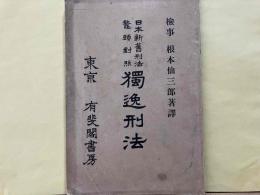 檢事 根本仙三郎著譯
日本新舊刑法
鼇頭對照
獨逸刑法
東京 有斐閣書房